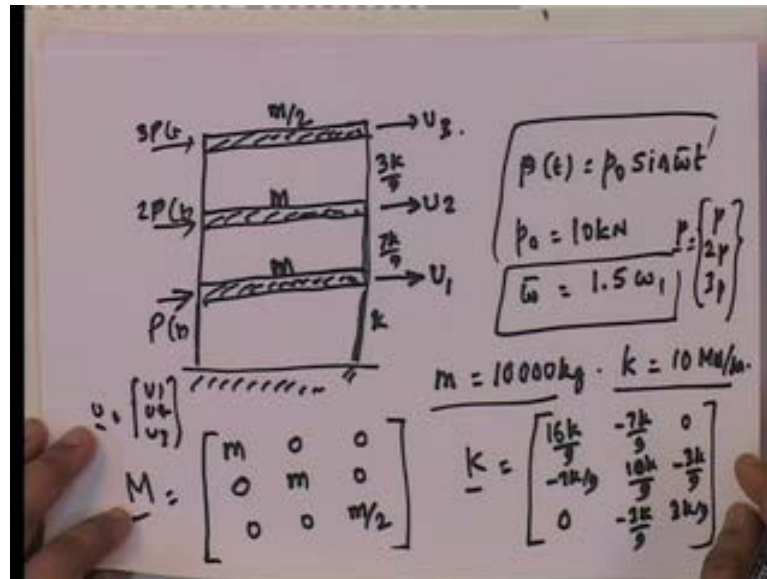 m/2
3P(t → U3.
3k/9
m
2P(t → U2
7k/9
m
→ U1
P(t)
k
p(t) = p0 sin ω̄t
p0 = 10kN p = {p 2p 3p}
ω̄ = 1.5 ω1
m = 10000kg . k = 10 MN/m.
u = {U1 U2 U3}
M = [m 0 0
0 m 0
0 0 m/2]
k = [16k/9 -7k/9 0
-7k/9 10k/9 -3k/9
0 -3k/9 3k/9]